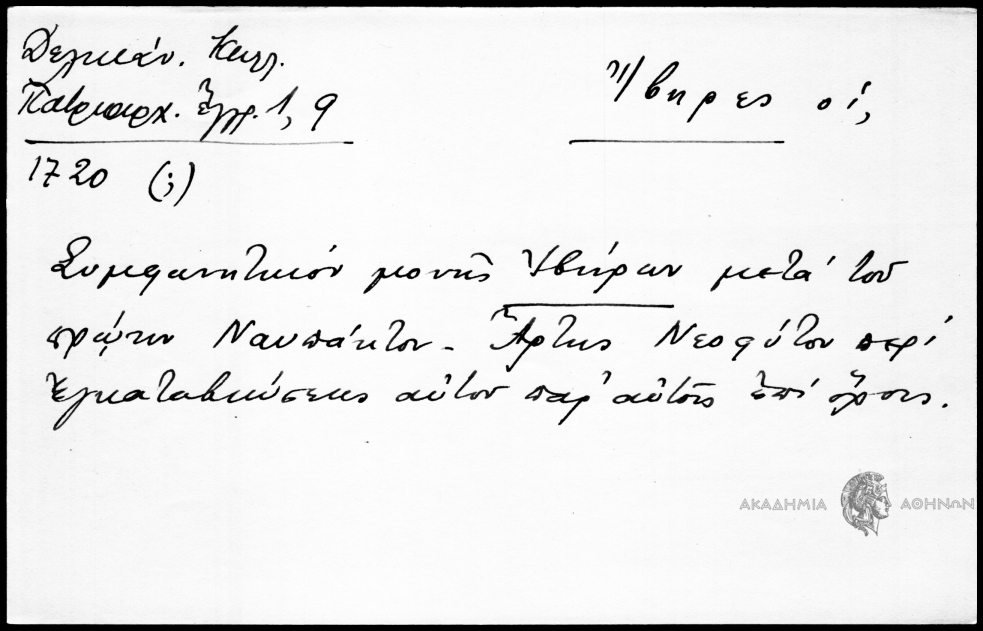 Δελικάν. Καλλ.
Πατριαρχ. Ἔγγρ. 1, 9
Ἴβηρες οἱ,
1720 (;)
Συμφωνητικόν μονῆς Ἰβήρων μετά τοῦ
πρώην Ναυπάκτου - Ἄρτης Νεοφύτου περί
ἐγκαταβιώσεως αὐτοῦ παρ' αὐτοῖς ἐπί ὅροις.
ΑΚΑΔΗΜΙΑ ΑΘΗΝΩΝ